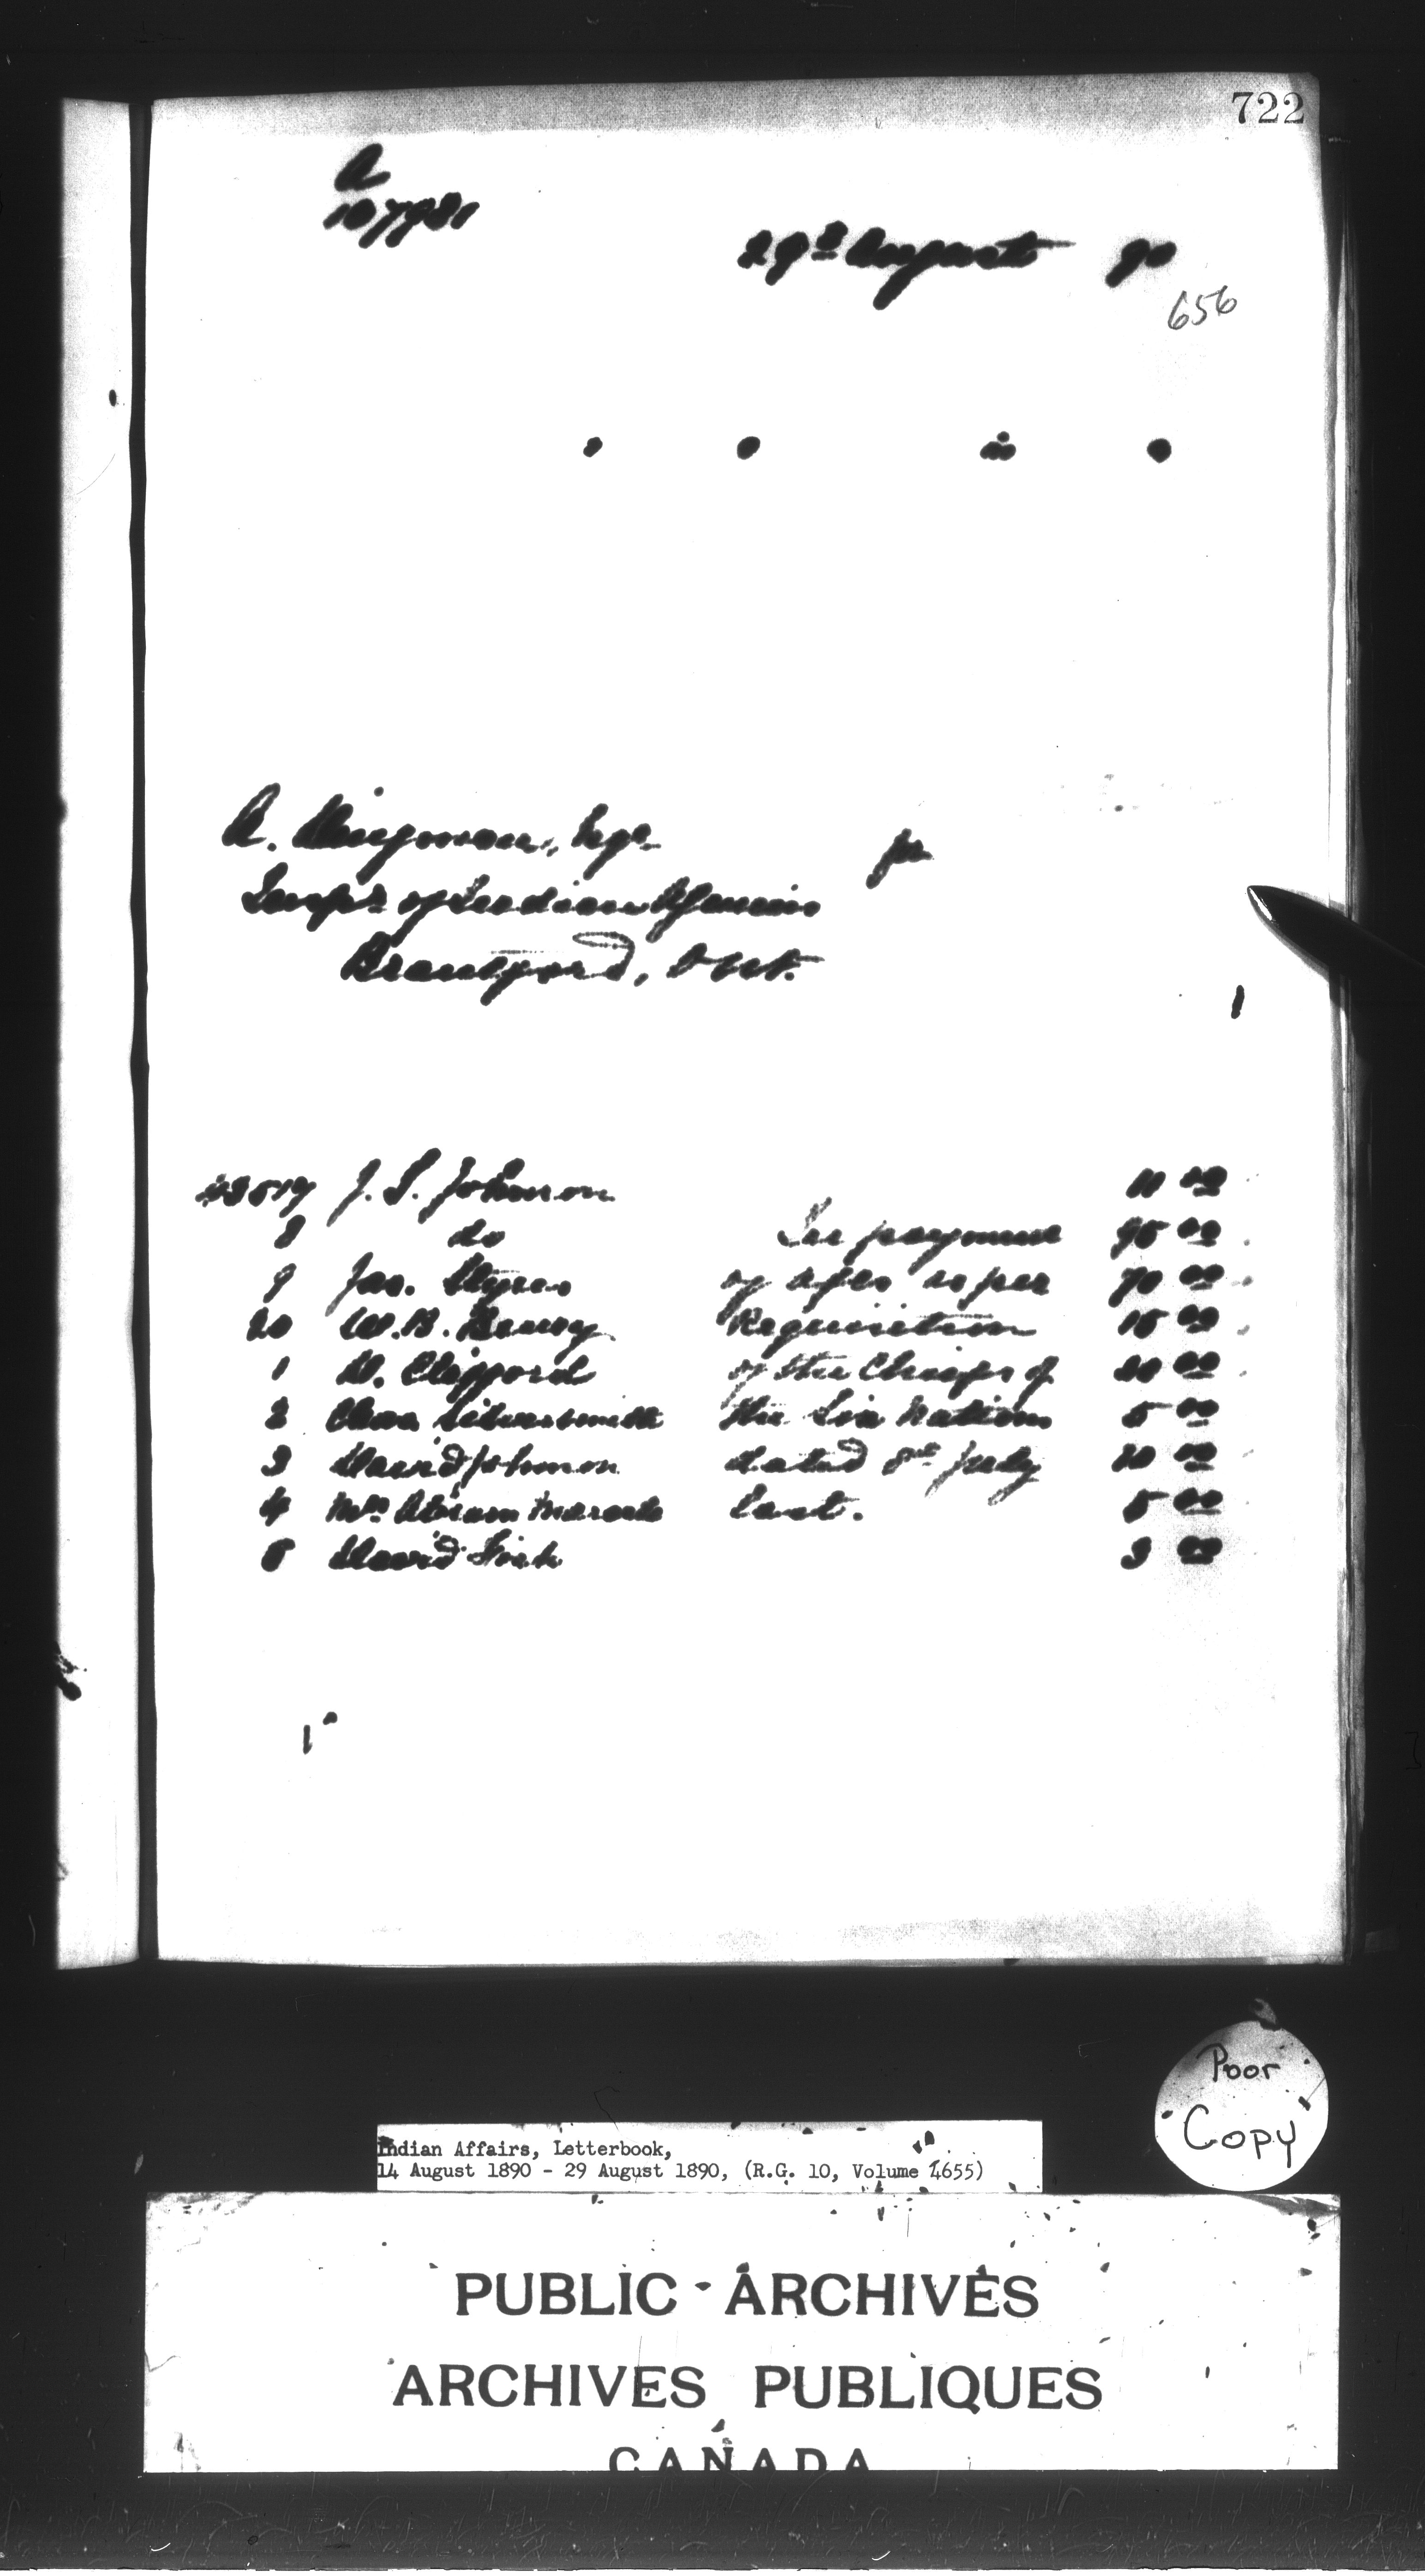 722
A
107981
29th August 90
656
A. Dingman, Esqr.
Inspr of Indian Agencies
Brantford, Ont.
J. S. Johnson 11 00
8 do In payment 95 00
9 Jas. Styres of a/cs as per 70 00
20 W. B. Requisition 15 00
1 D. Clifford of the Chiefs of 00
2 Silversmith the Six Nations 5 00
3 David Johnson dated 8th July 00
4 Mrs. Abram last. 5 00
5 David 3 00
Poor
Copy
Indian Affairs, Letterbook,
14 August 1890 - 29 August 1890, (R.G. 10, Volume 4655)
PUBLIC ARCHIVES
ARCHIVES PUBLIQUES
CANADA